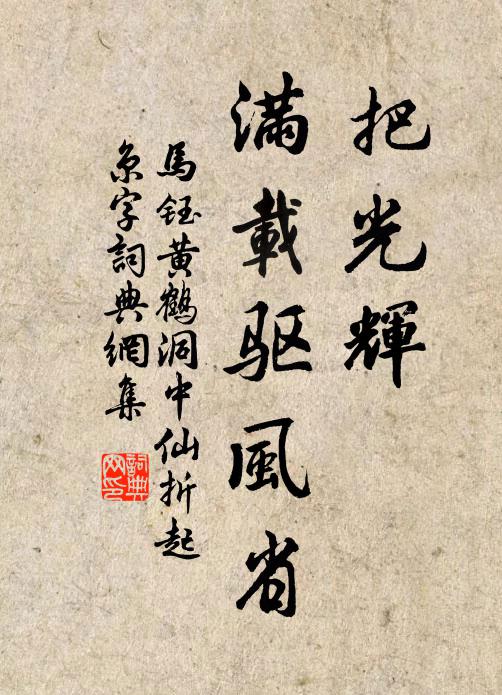 把光輝
滿載驱風省
馬鈺黄鶴洞中仙折起
京字詞典網集
詞典網印